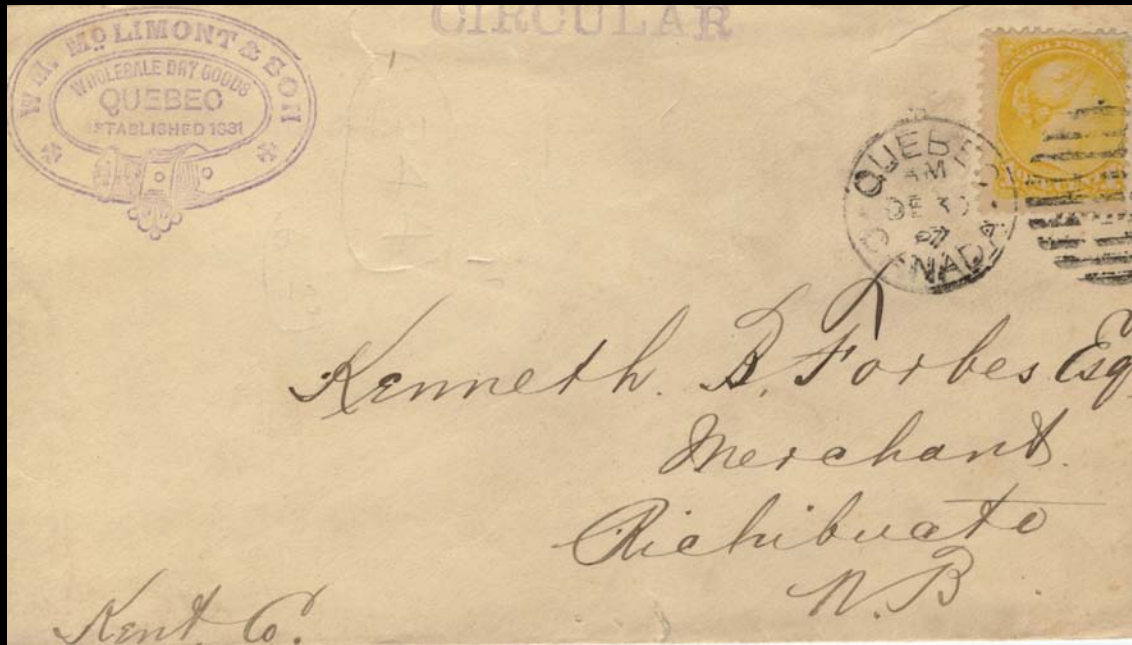 CIRCULAR
WM. McLIMONT & SON
WHOLESALE DRY GOODS
QUEBEC
ESTABLISHED 1831
CANADA POSTAGE
QUEBEC
AM
DE 30
CANADA
Kenneth. B. Forbes Esq
Merchant.
Richibucto
N.B.
Kent. Co.